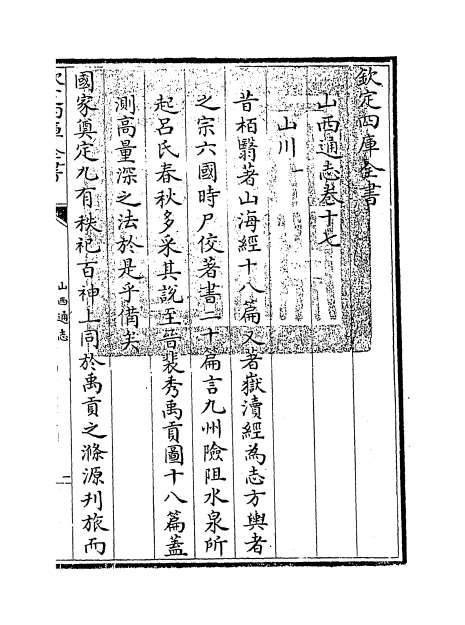 欽定四庫全書
山西通志卷十七
山川一
昔栢翳著山海經十八篇又著嶽瀆經為志方輿者
之宗六國時尸佼著書二十篇言九州險阻水泉所
起吕氏春秋多采其說至晉裴秀禹貢圖十八篇蓋
測高量深之法於是乎備矣
國家奠定九有秩祀百神上同於禹貢之滌源刋旅而
欽定四庫全書
山西通志